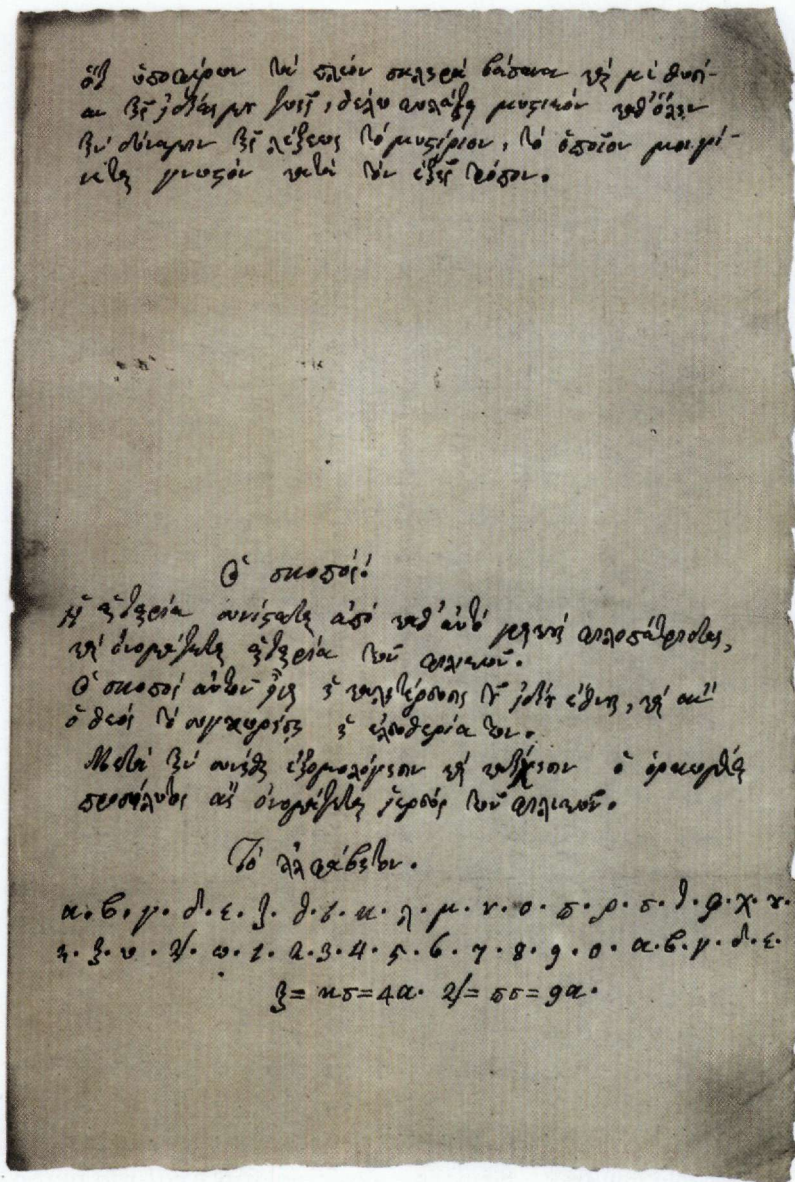 ὅτι ὑποφέρων τὰ πλέον σκληρὰ βάσανα καὶ μὲ θυσί-
αν τῆς ἰδίας μου ζωῆς, θέλω φυλάξῃ μυστικὸν καθ' ὅλην
τὴν δύναμιν τῆς λέξεως τὸ μυστήριον, τὸ ὁποῖον μοι γί-
νεται γνωστὸν κατὰ τὸν ἑξῆς τρόπον.
Ὁ σκοπός!
Ἡ ἑταιρία συνίσταται ἀπὸ καθ' αὐτὸ φιλοπάτριδας,
καὶ ὀνομάζεται ἑταιρία τῶν φιλικῶν.
Ὁ σκοπὸς αὐτῶν εἶναι ἡ καλυτέρευσις τοῦ ἰδίου ἔθνους, καὶ ἂν
ὁ θεὸς τὸ συγχωρήσῃ ἡ ἐλευθερία του.
Μετὰ τὴν συνήθη ἐξομολόγησιν καὶ κατήχησιν ὁ ὁρκωθεὶς
προσήλυτος ὀνομάζεται ἱερεὺς τῶν φιλικῶν.
Τὸ ἀλφάβητον.
α. β. γ. δ. ε. ζ. θ. ι. κ. λ. μ. ν. ο. π. ρ. σ. τ. φ. χ. υ.
η. ξ. υ. ψ. ω. 1. 2. 3. 4. 5. 6. 7. 8. 9. 0. α. β. γ. δ. ε.
ξ = κσ = 4α. ψ = πσ = 9α.